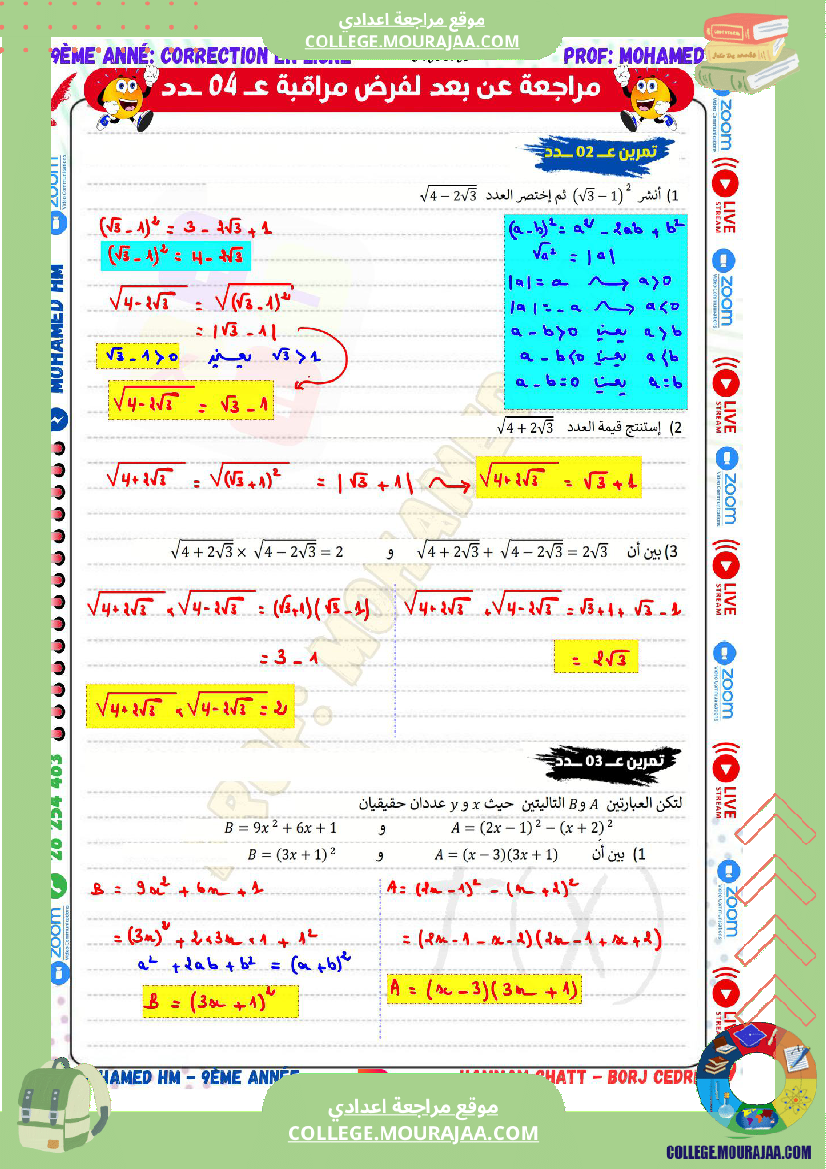 موقع مراجعة اعدادي
COLLEGE.MOURAJAA.COM
9ÈME ANNÉ: CORRECTION EN LIGNE
PROF: MOHAMED
مراجعة عن بعد لفرض مراقبة عـ 04 ـدد
تمرين عـ 02 ـدد
1) أنشر (√3 − 1)² ثم إختصر العدد √(4 − 2√3)
(√3 − 1)² = 3 − 2√3 + 1
(√3 − 1)² = 4 − 2√3
√(4 − 2√3) = √((√3 − 1)²)
= |√3 − 1|
√3 − 1 > 0 يعني √3 > 1
√(4 − 2√3) = √3 − 1
(a − b)² = a² − 2ab + b²
√a² = |a|
|a| = a ⟿ a > 0
|a| = −a ⟿ a < 0
a − b > 0 يعني a > b
a − b < 0 يعني a < b
a − b = 0 يعني a = b
2) إستنتج قيمة العدد √(4 + 2√3)
√(4 + 2√3) = √((√3 + 1)²) = |√3 + 1| ⟿ √(4 + 2√3) = √3 + 1
3) بين أن √(4 + 2√3) + √(4 − 2√3) = 2√3 و √(4 + 2√3) × √(4 − 2√3) = 2
√(4 + 2√3) + √(4 − 2√3) = √3 + 1 + √3 − 1
= 2√3
√(4 + 2√3) × √(4 − 2√3) = (√3 + 1)(√3 − 1)
= 3 − 1
√(4 + 2√3) × √(4 − 2√3) = 2
تمرين عـ 03 ـدد
لتكن العبارتين A وB التاليتين حيث x و y عددان حقيقيان
A = (2x − 1)² − (x + 2)² و B = 9x² + 6x + 1
1) بين أن A = (x − 3)(3x + 1) و B = (3x + 1)²
A = (2x − 1)² − (x + 2)²
= (2x − 1 − x − 2)(2x − 1 + x + 2)
A = (x − 3)(3x + 1)
B = 9x² + 6x + 1
= (3x)² + 2 × 3x × 1 + 1²
a² + 2ab + b² = (a + b)²
B = (3x + 1)²
zoom
MOHAMED HM
28 254 403
zoom
zoom
LIVE
STREAM
zoom
LIVE
STREAM
zoom
LIVE
STREAM
zoom
LIVE
STREAM
zoom
HAMED HM - 9ÈME ANNÉE
HAMMAM CHATT - BORJ CEDRI
موقع مراجعة اعدادي
COLLEGE.MOURAJAA.COM
COLLEGE.MOURAJAA.COM